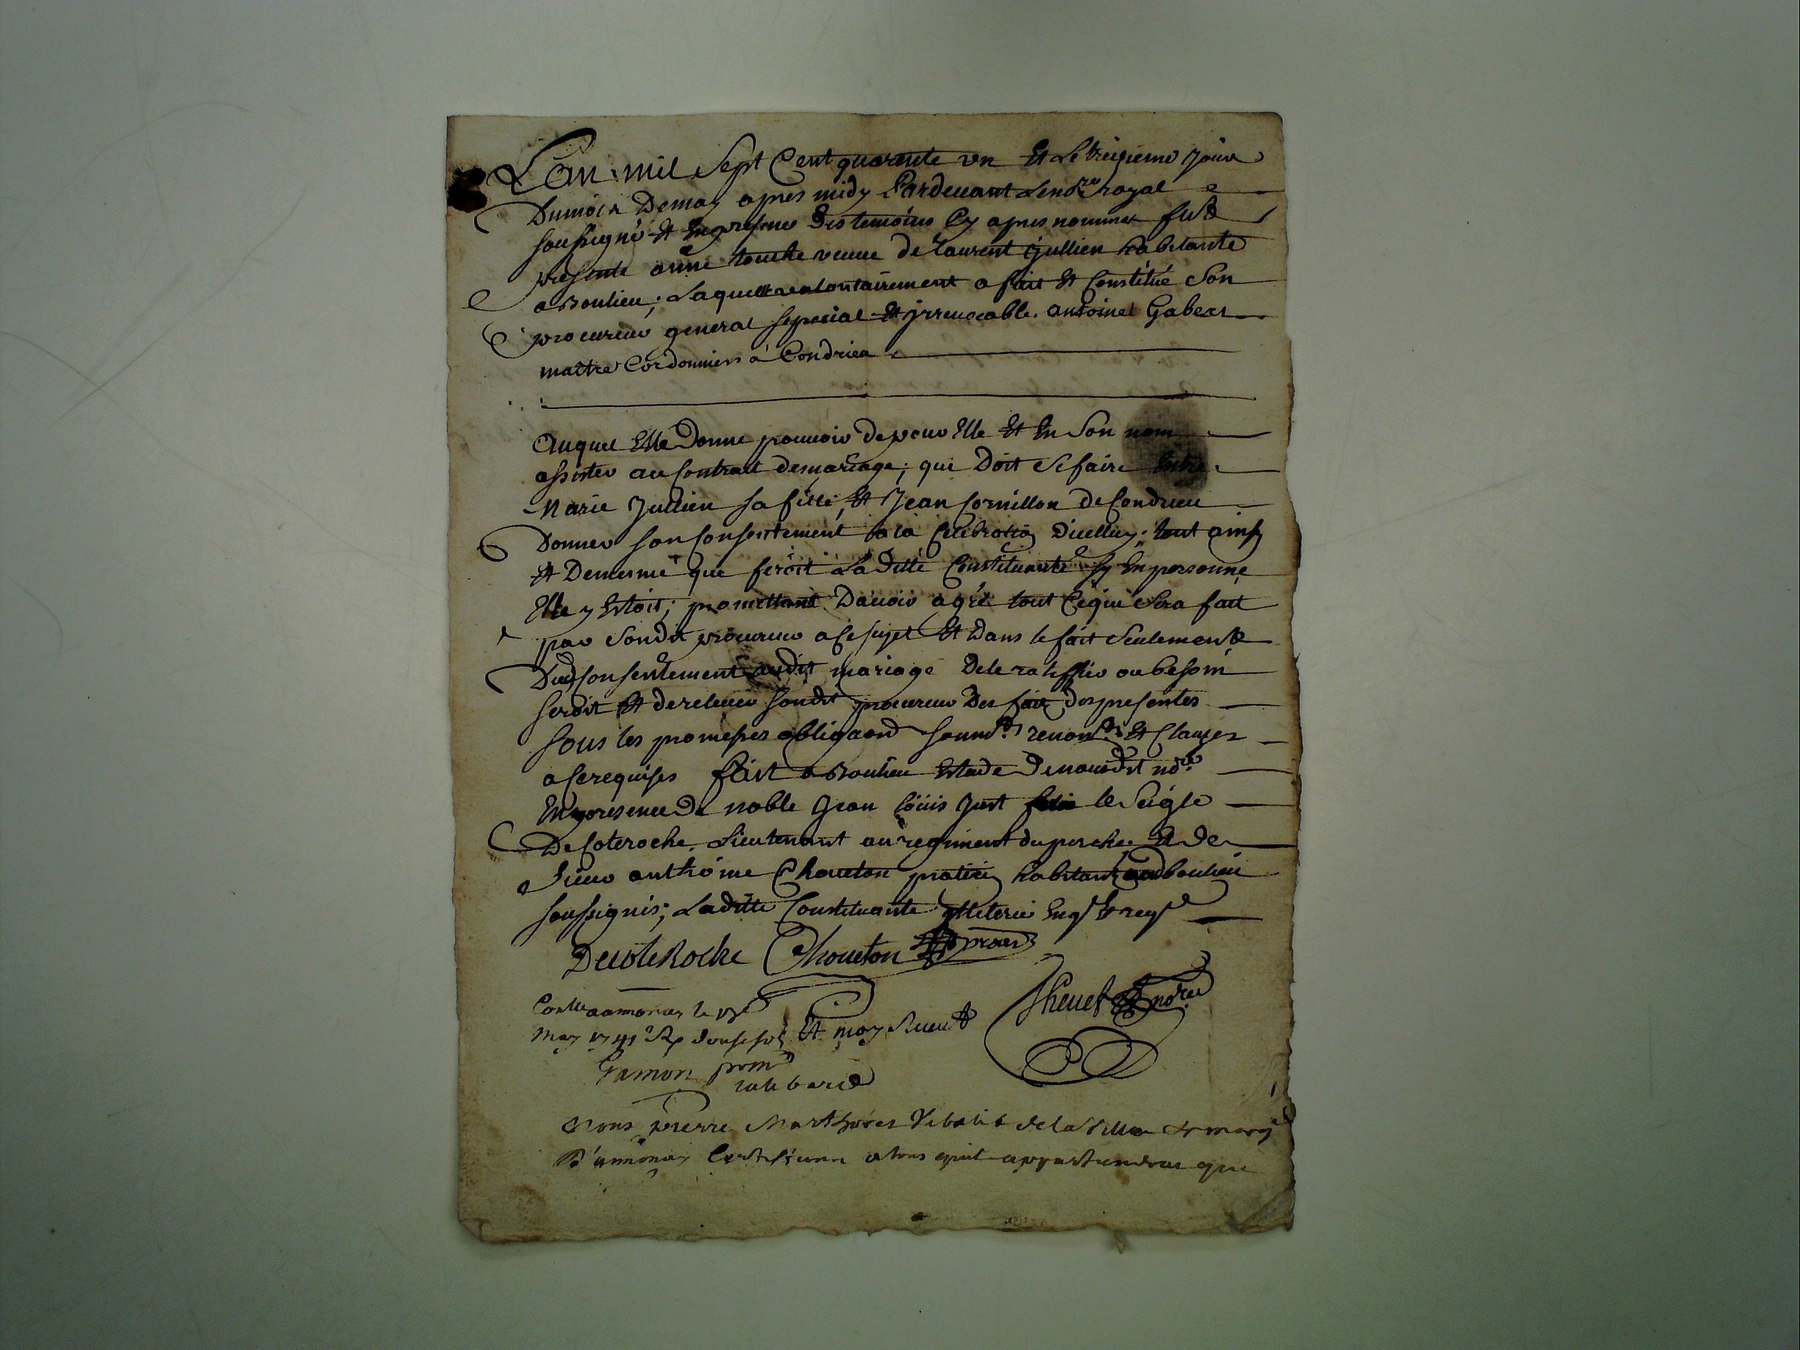 L'an mil Sept Cent quarente un Et Le treizieme Jour
Dumois Demay apres midy Pardeuant Le nore royal
soussigné Et En presence Des temoins Cy apres nommes fut
presente anne touche veuve de Laurent Jullien habitante
a Boulieu; Laquelle volontairement a fait Et Constitué Son
procureur general special Et jrreuocable. antoine Gabert
maître Cordonnier à Condrieu
Auquel Elle Donne pouuoir de pour Elle Et En Son nom
assister au Contrat de mariage, qui Doit Se faire Entre
Marie Jullien sa fille, Et Jean Cornillon de Condrieu
Donner son Consentement a la Celebration D'icelluy, tout ainsy
Et Demesme que feroit La ditte Constituante sy En personne
Elle y Estoit; promettant D'auoir agré tout Ce qui Sera fait
par Sondit procureur a Ce sujet Et Dans le fait Seulement
Dud Consentement audit mariage De le ratiffier ou besoin
seroit Et de releuer Sondit procureur Des fait Des presentes
sous les promesses obligaons renon Et Clauses
a Ce requises fait a Boulieu Estude De nousdit nore
En presence De noble Jean Loüis Just le Seigle
De Coleroche. Lieutenant au regiment du perche, Et de
Sieur anthoine Choueton praticien habitant aud boulieu
soussignés; La ditte Constituante jlliterée Enqse Et reqse
DecoleRoche Choueton
Conlle a annonay le 17e
May 1741 R douse sols Et moy Nore
Gamon
Nous pierre de la Ville
D'annonay Certifions a tous qu'il appartiendra que